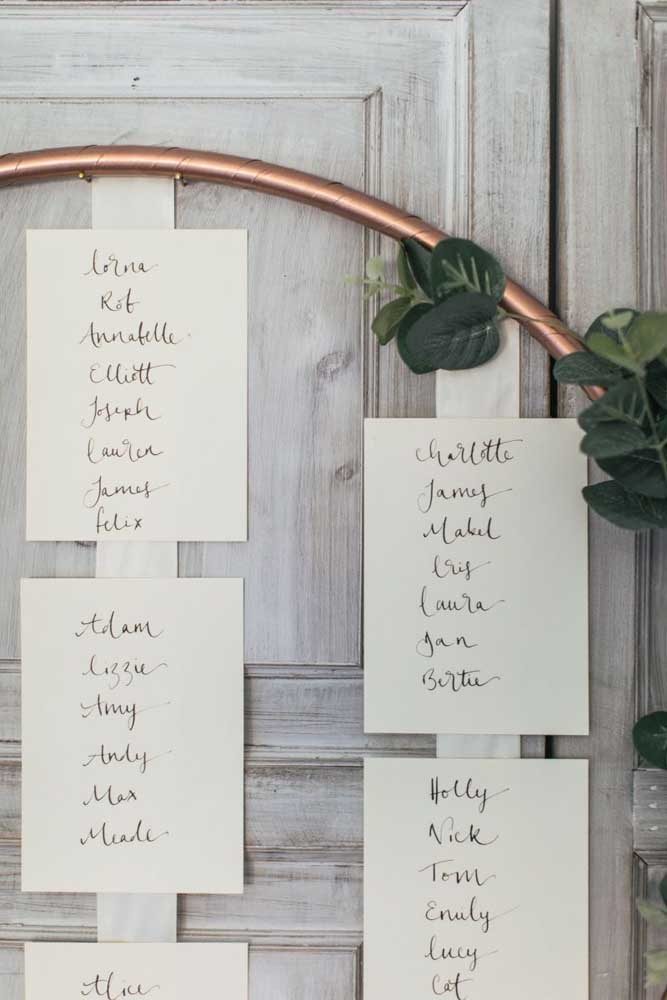 Lorna
Rob
Annabelle
Elliott
Joseph
Lauren
James
felix
Adam
Lizzie
Amy
Andy
Max
Meade
Alice
Charlotte
James
Mabel
Iris
Laura
Jan
Bertie
Holly
Nick
Tom
Emily
Lucy
Cat